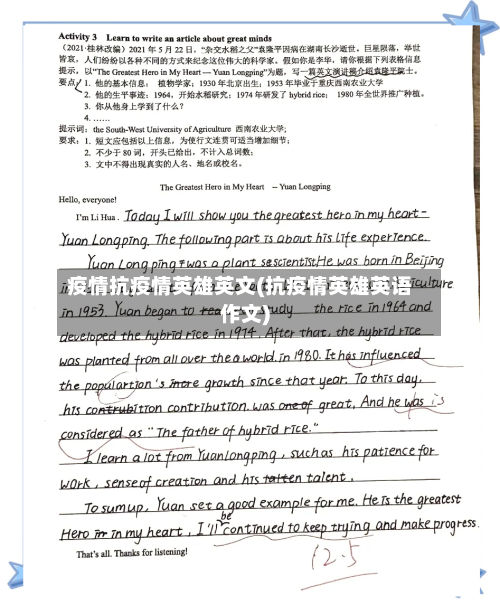 Activity 3 Learn to write an article about great minds
(2021·桂林改编) 2021 年 5 月 22 日,“杂交水稻之父”袁隆平因病在湖南长沙逝世。巨星陨落,举世
皆哀,人们纷纷以各种不同的方式来纪念这位伟大的科学家。假如你是李华,请你根据下列表格信息
提示,以“The Greatest Hero in My Heart — Yuan Longping”为题,写一篇英文演讲稿介绍袁隆平院士。
要点: 1. 他的基本信息: 植物学家;1930 年北京出生;1953 年毕业于重庆西南农业大学
2. 他的生平事迹:1964, 开始水稻研究;1974 年研发了 hybrid rice; 1980 年全世界推广种植。
3. 你从他身上学到了什么?
4. ……
提示词: the South-West University of Agriculture 西南农业大学;
要求: 1. 短文应包括以上信息,为使行文连贯可适当增加细节;
2. 不少于 80 词,开头已给出,不计入总词数;
3. 文中不得出现真实的人名、地名或校名。
The Greatest Hero in My Heart – Yuan Longping
Hello, everyone!
I'm Li Hua. Today I will show you the greatest hero in my heart-
Yuan Longping. The following part is about his life experience.
Yuan Long ping was a plant scientist. He was born in Beijing
疫情抗疫情英雄英文(抗疫情英雄英语
作文)
in 1953. Yuan began to study the rice in 1964 and
developed the hybrid rice in 1974. After that, the hybrid rice
was planted from all over the world. in 1980. It has influenced
the populartion's more growth since that year. To this day,
his contrubition contribution. was one of great. And he was is
considered as "The father of hybrid rice."
I learn a lot from Yuanlongping, such as his patience for
work, sense of creation and his talten talent.
To sum up, Yuan set a good example for me. He is the greatest
Hero in in my heart, I'll be continued to keep trying and make progress.
That's all. Thanks for listening!
12.5